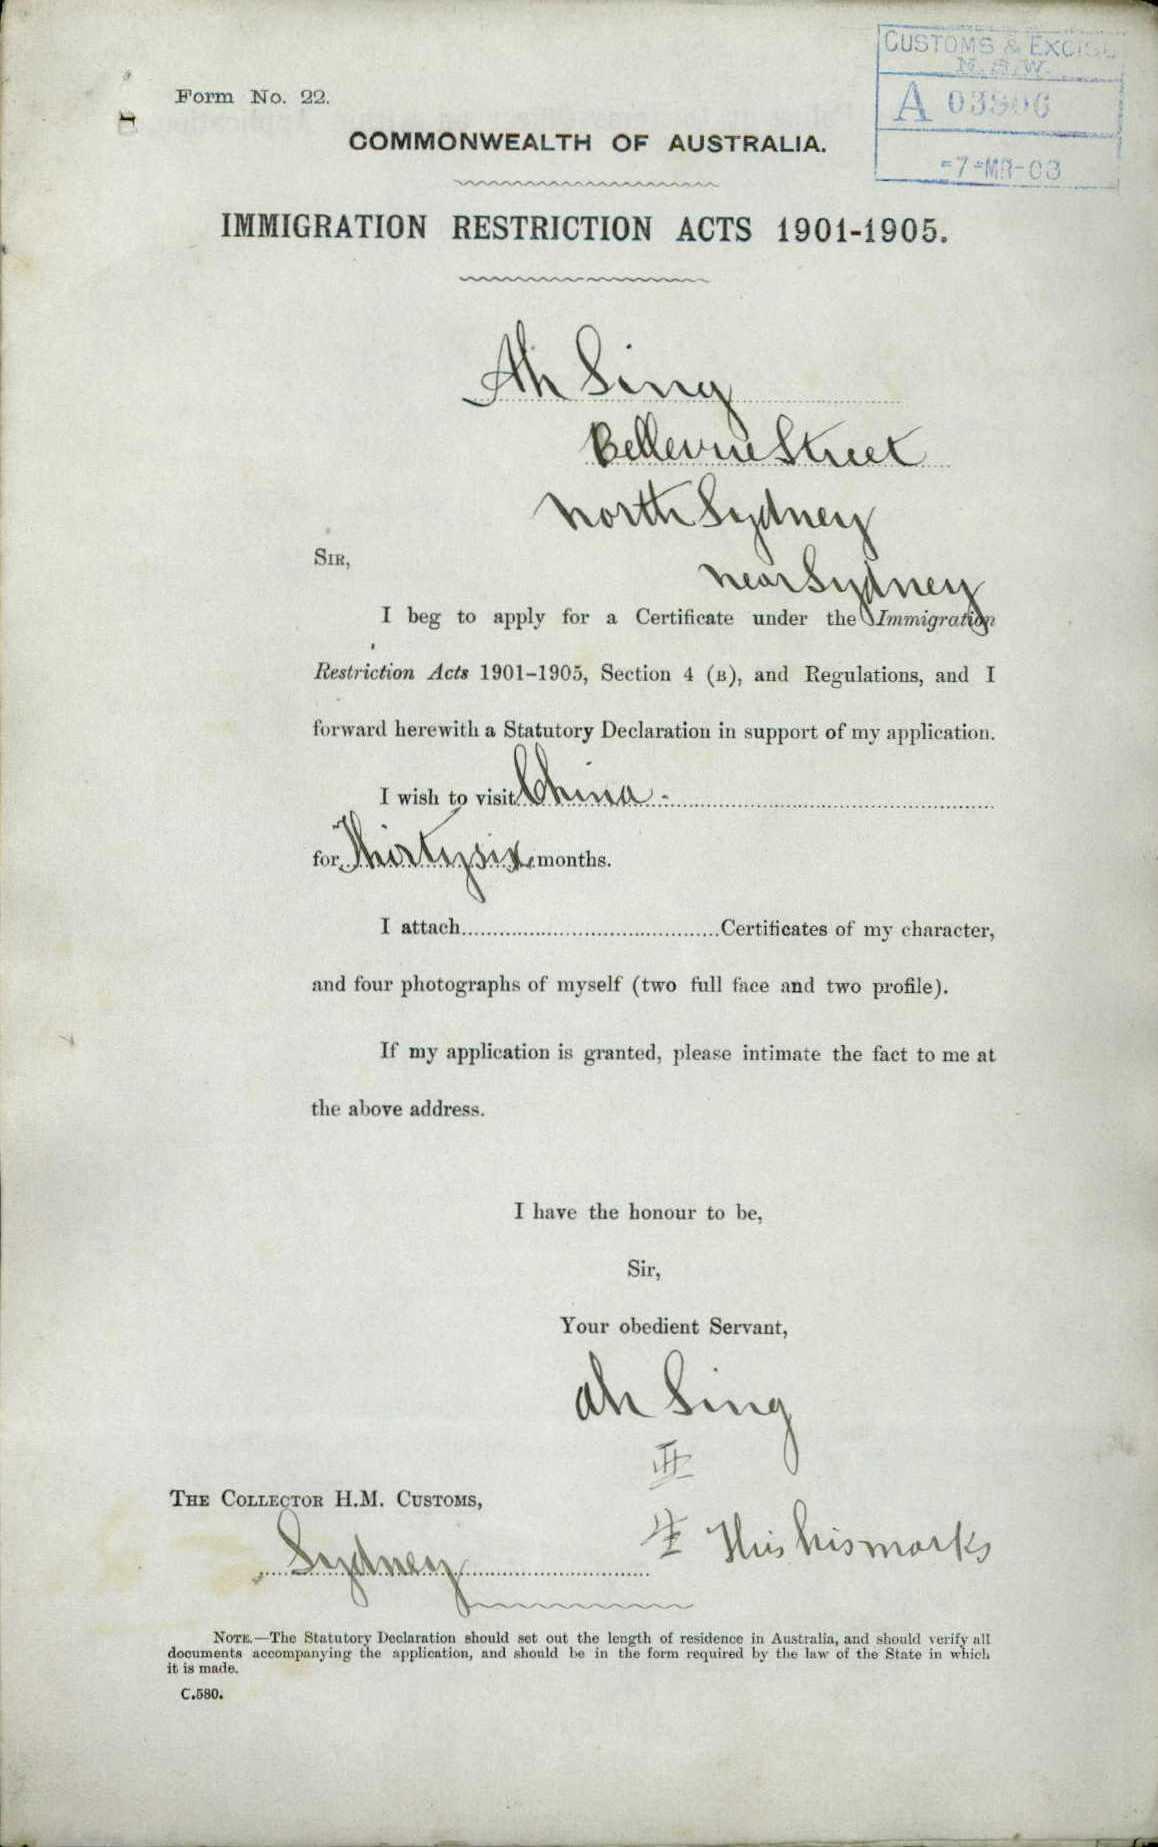 CUSTOMS & EXCISE
N.S.W.
Form No. 22.
A
-7-MR-08
COMMONWEALTH OF AUSTRALIA.
IMMIGRATION RESTRICTION ACTS 1901-1905.
Ah Sing
Bellevue Street
North Sydney
near Sydney
SIR,
I beg to apply for a Certificate under the Immigration
Restriction Acts 1901-1905, Section 4 (B), and Regulations, and I
forward herewith a Statutory Declaration in support of my application.
I wish to visit China -
for Thirty six months.
I attach........................................Certificates of my character,
and four photographs of myself (two full face and two profile).
If my application is granted, please intimate the fact to me at
the above address.
I have the honour to be,
Sir,
Your obedient Servant,
Ah Sing
THE COLLECTOR H.M. CUSTOMS,
生 This his marks
Sydney
NOTE.—The Statutory Declaration should set out the length of residence in Australia, and should verify all
documents accompanying the application, and should be in the form required by the law of the State in which
it is made.
C.580.